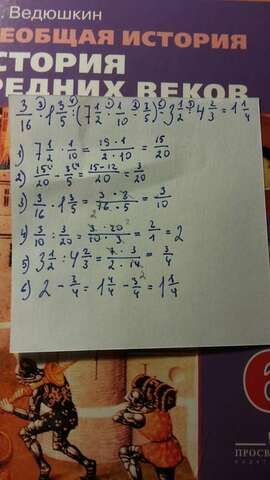 . Ведюшкин
ЕОБЩАЯ ИСТОРИЯ
СТОРИЯ
РЕДНИХ ВЕКОВ
3/16 · 1 3/5 : (7 1/2 · 1/10 - 3/5) - 3 1/2 : 4 2/3 = 1 1/4
1) 7 1/2 · 1/10 = 15 · 1 / 2 · 10 = 15/20
2) 15/20 - 3/5 = 15-12/20 = 3/20
3) 3/16 · 1 3/5 = 3 · 8 / 16 · 5 = 3/10
4) 3/10 : 3/20 = 3 · 20 / 10 · 3 = 2/1 = 2
5) 3 1/2 : 4 2/3 = 7 · 3 / 2 · 14 = 3/4
6) 2 - 3/4 = 1 4/4 - 3/4 = 1 1/4
6
ПРОСВ